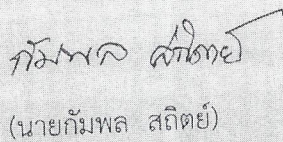 กัมพล สถิตย์
(นายกัมพล สถิตย์)